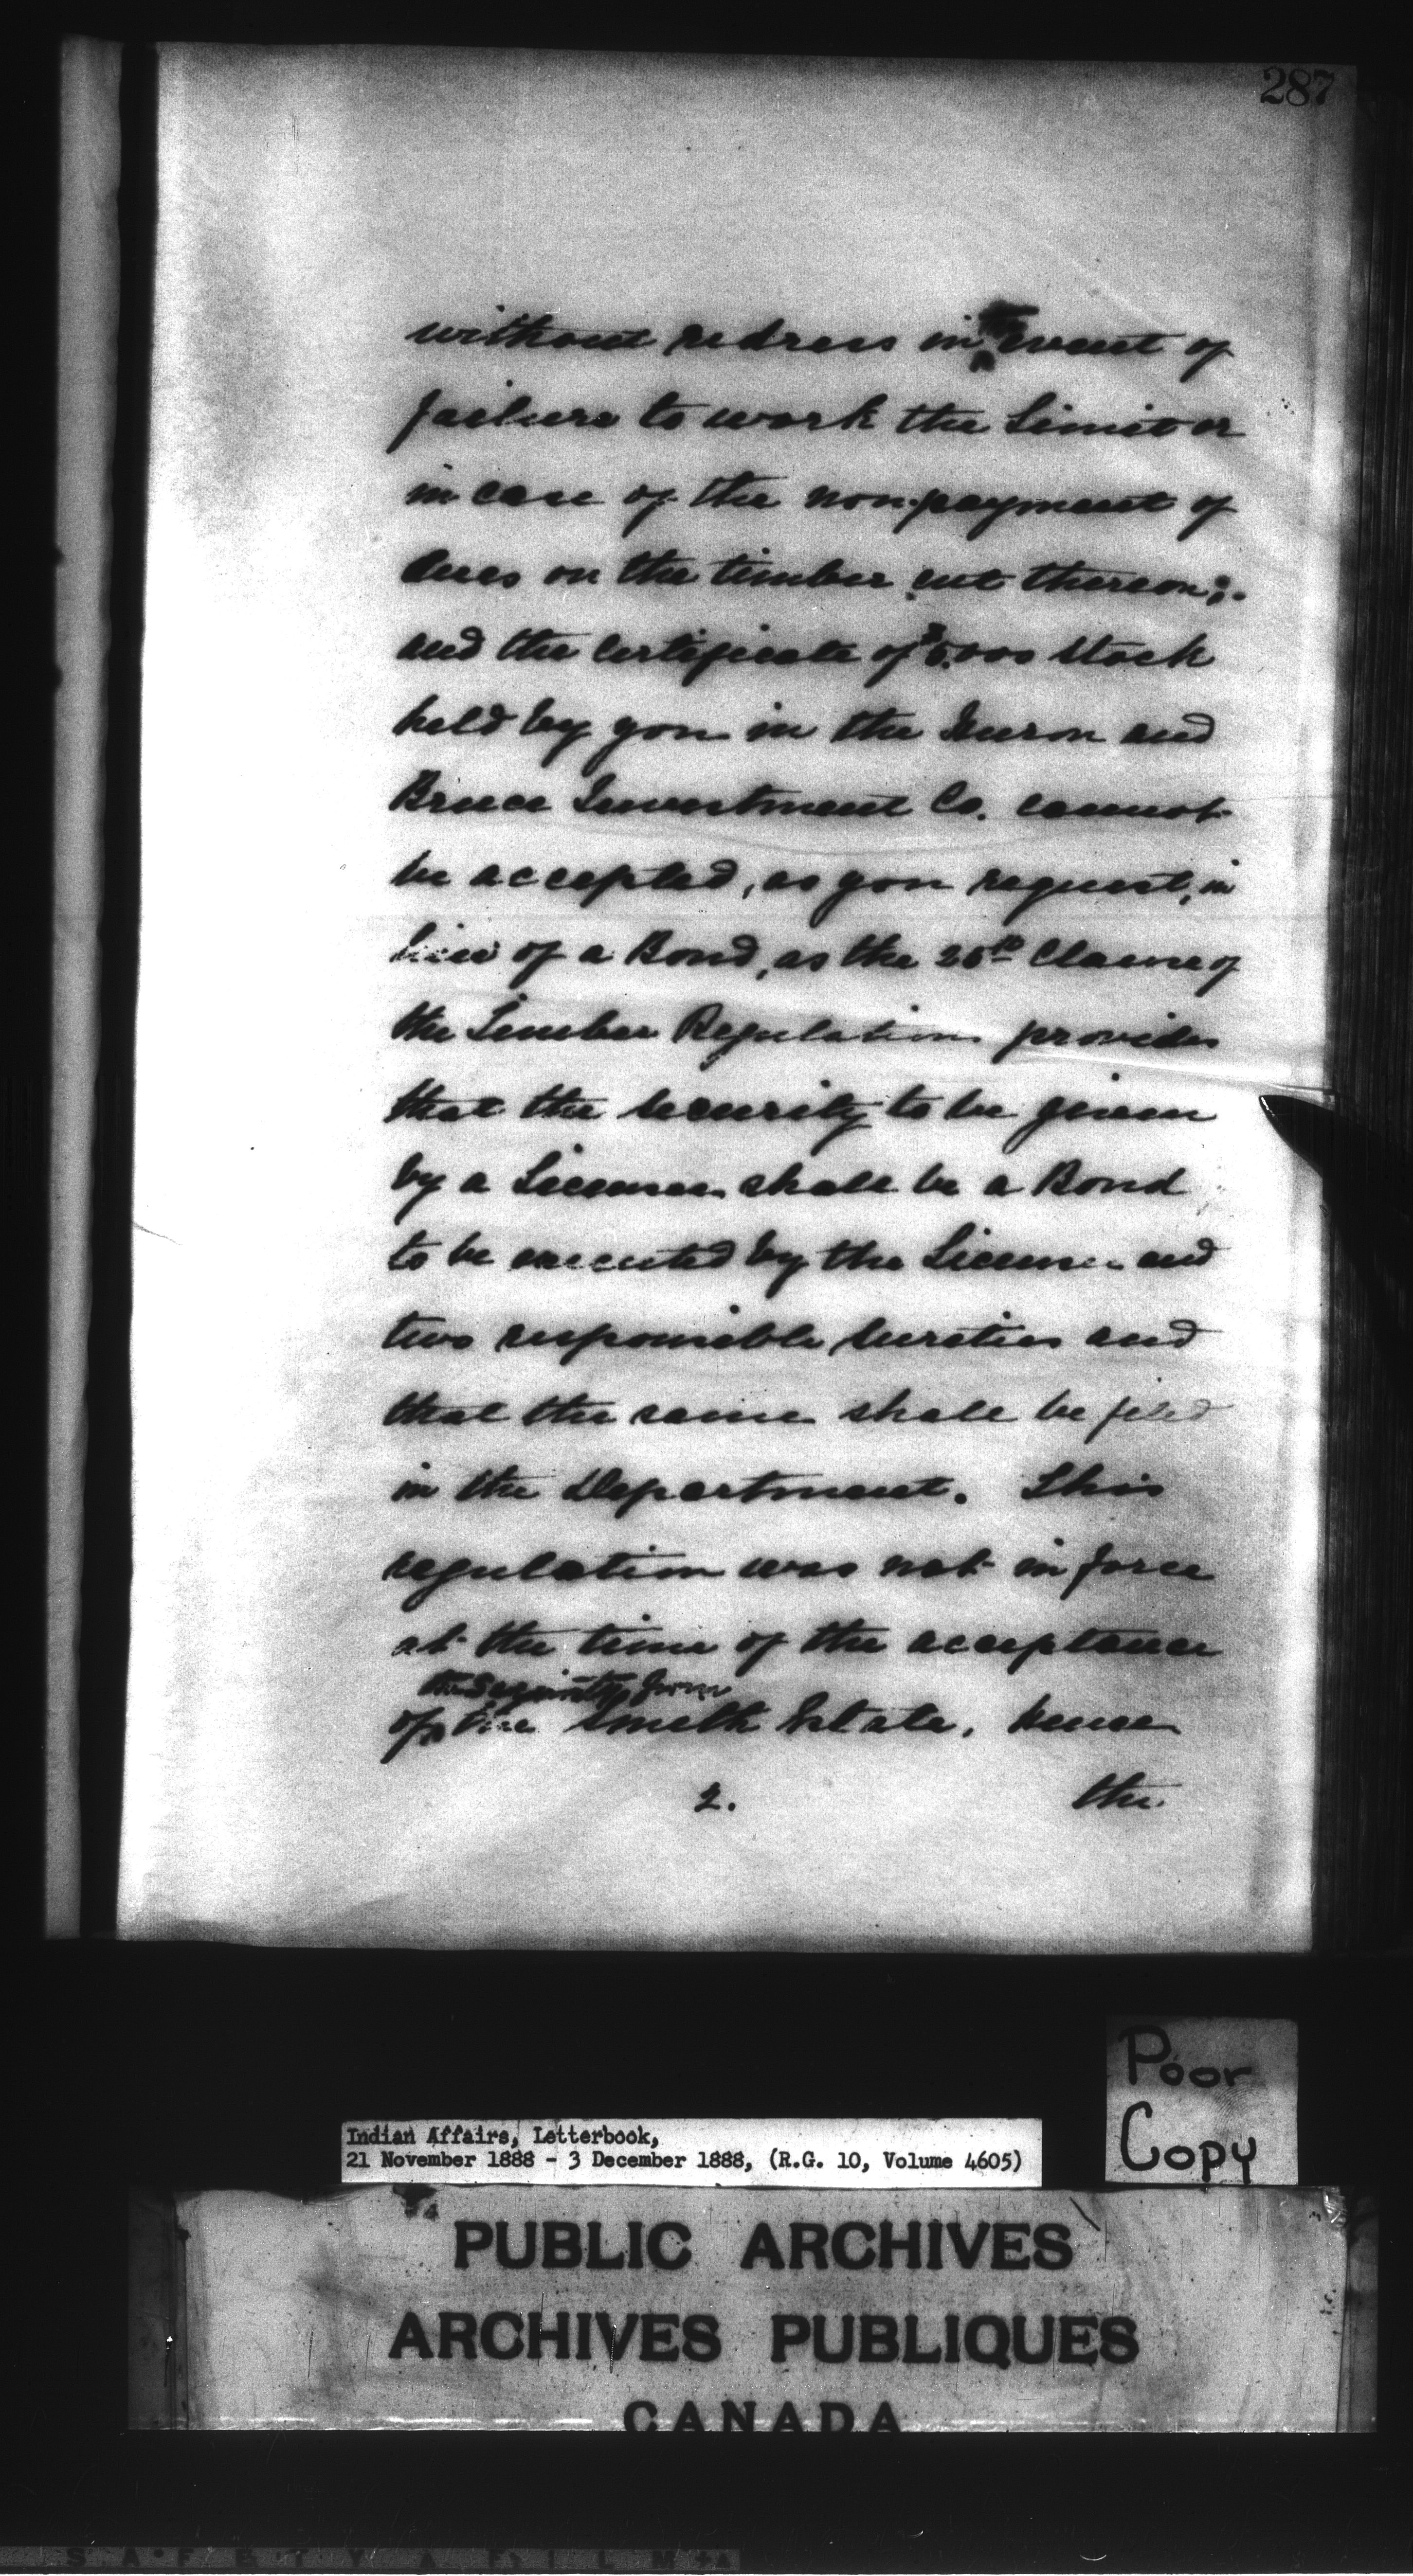 287
without redress in the event of
failure to work the Limit or
in case of the non-payment of
dues on the timber cut thereon;
and the certificate of $5,000 stock
held by you in the Huron and
Bruce Investment Co. cannot
be accepted, as you request, in
lieu of a Bond, as the 20th Clause of
the Timber Regulations provides
that the security to be given
by a Licensee shall be a Bond
to be executed by the Licensee and
two responsible sureties and
that the same shall be filed
in the Department. This
regulation was not in force
at the time of the acceptance
the security from
of the Smith Estate, hence
2. the
Poor
Copy
Indian Affairs, Letterbook,
21 November 1888 - 3 December 1888, (R.G. 10, Volume 4605)
PUBLIC ARCHIVES
ARCHIVES PUBLIQUES
CANADA